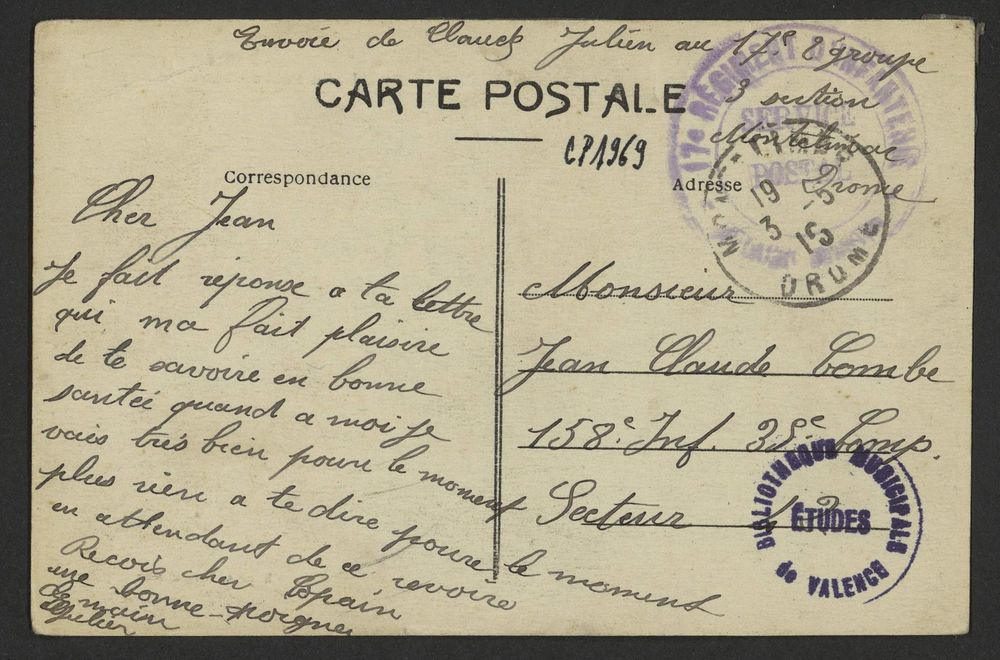 Envoie de Claude Julien au 17e 8 groupe
3 section
Montelimar
Drome
CARTE POSTALE
CP1969
Correspondance
Cher Jean
Je fait réponse a ta lettre
qui ma fait plaisire
de te savoire en bonne
santée quand a moi je
vais très bien poure le moment
plus rien a te dire poure le moment
en attendant de ce revoire
Recois cher Copain
une bonne poignée
de main
Julien
Adresse
Monsieur
Jean Claude Combe
158e Inf. 32e Comp.
Secteur
17e REGIMENT D'INFANTERIE
SERVICE
POSTAL
19
3
15
DROME
BIBLIOTHEQUE MUNICIPALE
ÉTUDES
de VALENCE